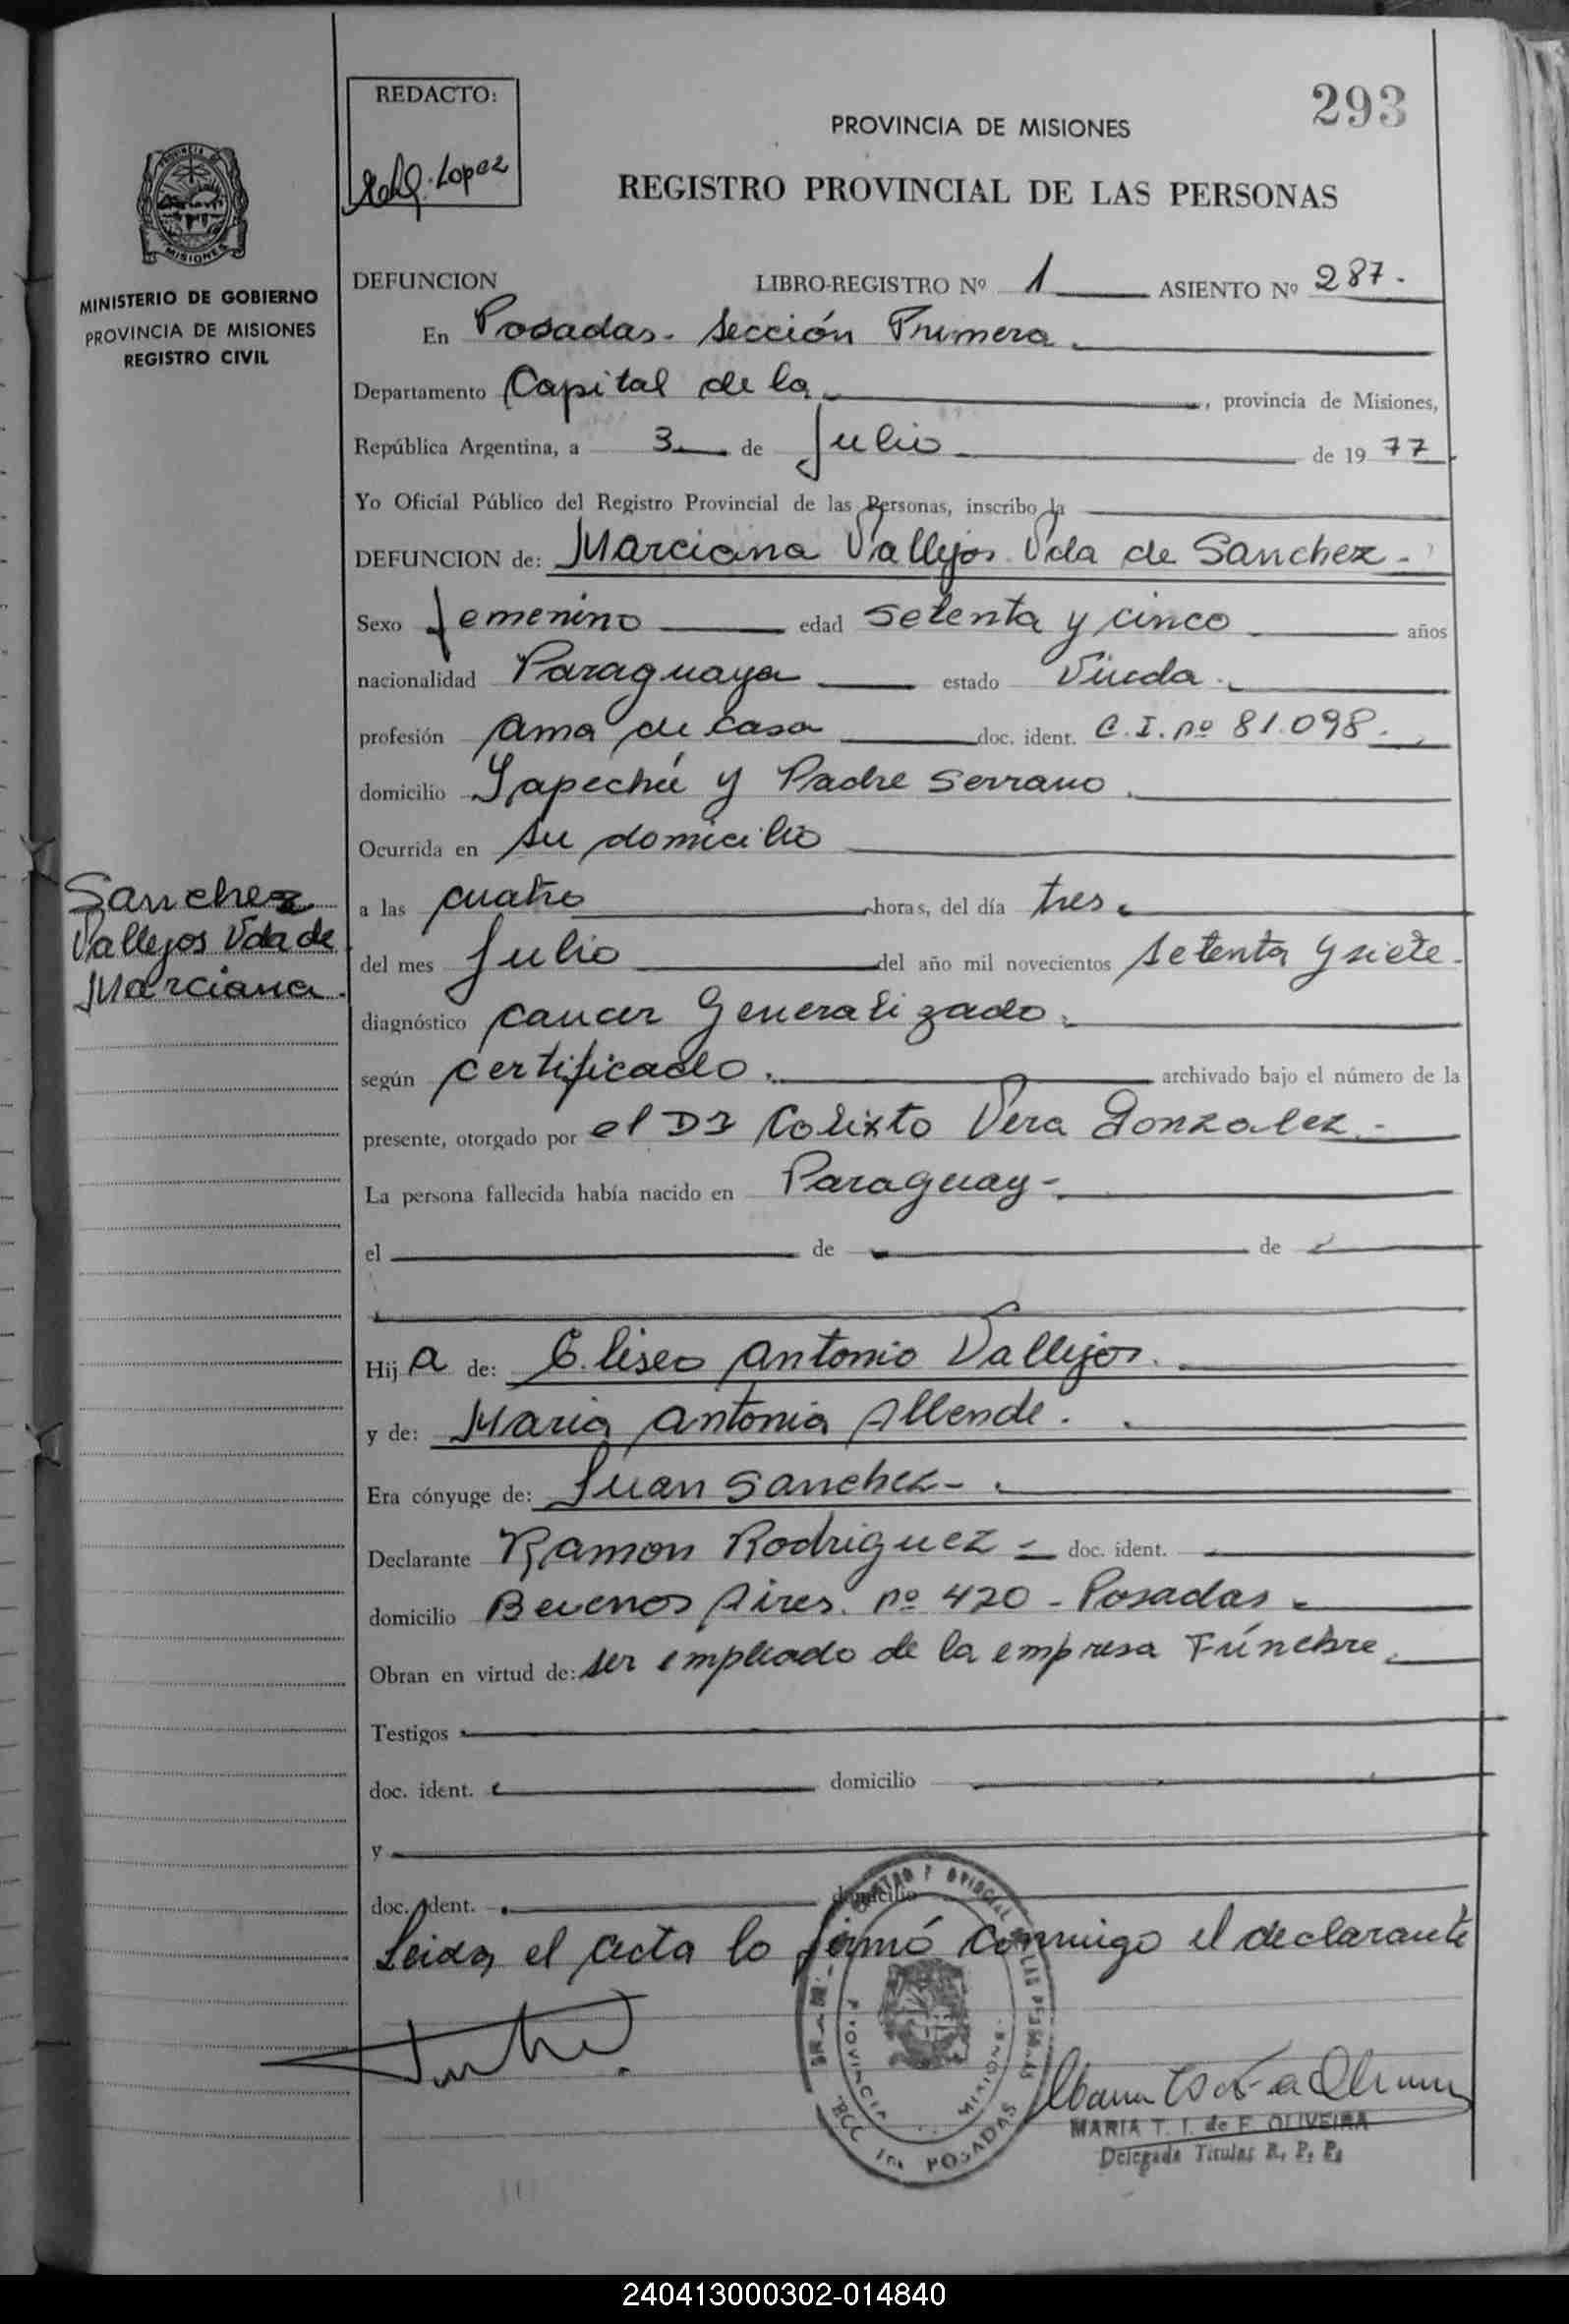 293
REDACTO:
Lopez
PROVINCIA DE MISIONES
REGISTRO PROVINCIAL DE LAS PERSONAS
PROVINCIA DE
MISIONES
MINISTERIO DE GOBIERNO
PROVINCIA DE MISIONES
REGISTRO CIVIL
DEFUNCION LIBRO-REGISTRO Nº 1 ASIENTO Nº 287.-
En Posadas - Sección Primera
Departamento Capital de la , provincia de Misiones,
República Argentina, a 3 de Julio de 1977
Yo Oficial Público del Registro Provincial de las Personas, inscribo la
DEFUNCION de: Marciana Vallejos Vda de Sanchez -
Sexo femenino edad Setenta y cinco años
nacionalidad Paraguaya estado Viuda.
profesión ama de casa doc. ident. C.I. nº 81.098.
domicilio Yapechú y Padre Serrano
Ocurrida en su domicilio
a las cuatro horas, del día tres
del mes Julio del año mil novecientos setenta y siete.
Sanchez
Vallejos Vda de
Marciana.
diagnóstico cancer Generalizado.
según certificado. archivado bajo el número de la
presente, otorgado por el Dr Colixto Vera Gonzalez.-
La persona fallecida había nacido en Paraguay-
el de de
Hija de: Eliseo Antonio Vallejos.
y de: Maria Antonia Allende.
Era cónyuge de: Juan Sanchez-
Declarante Ramon Rodriguez - doc. ident.
domicilio Buenos Aires. nº 420 - Posadas
Obran en virtud de: ser empleado de la empresa Fúnebre
Testigos
doc. ident. domicilio
y
doc. ident. domicilio
Leida el acta lo firmó conmigo el declarante
PROVINCIA MISIONES
POSADAS
MARIA T. I. de F. OLIVEIRA
Delegada Titular R. P. P.
240413000302-014840